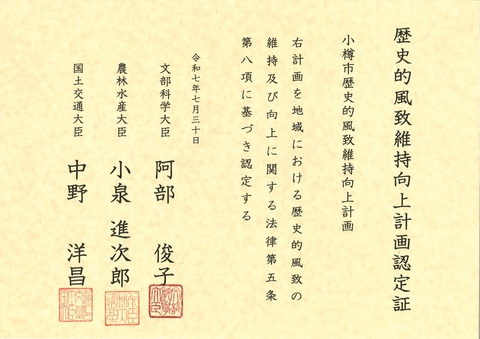 歴史的風致維持向上計画認定証
小樽市歴史的風致維持向上計画
右計画を地域における歴史的風致の
維持及び向上に関する法律第五条
第八項に基づき認定する
令和七年七月三十日
文部科学大臣 阿部 俊子
農林水産大臣 小泉 進次郎
国土交通大臣 中野 洋昌